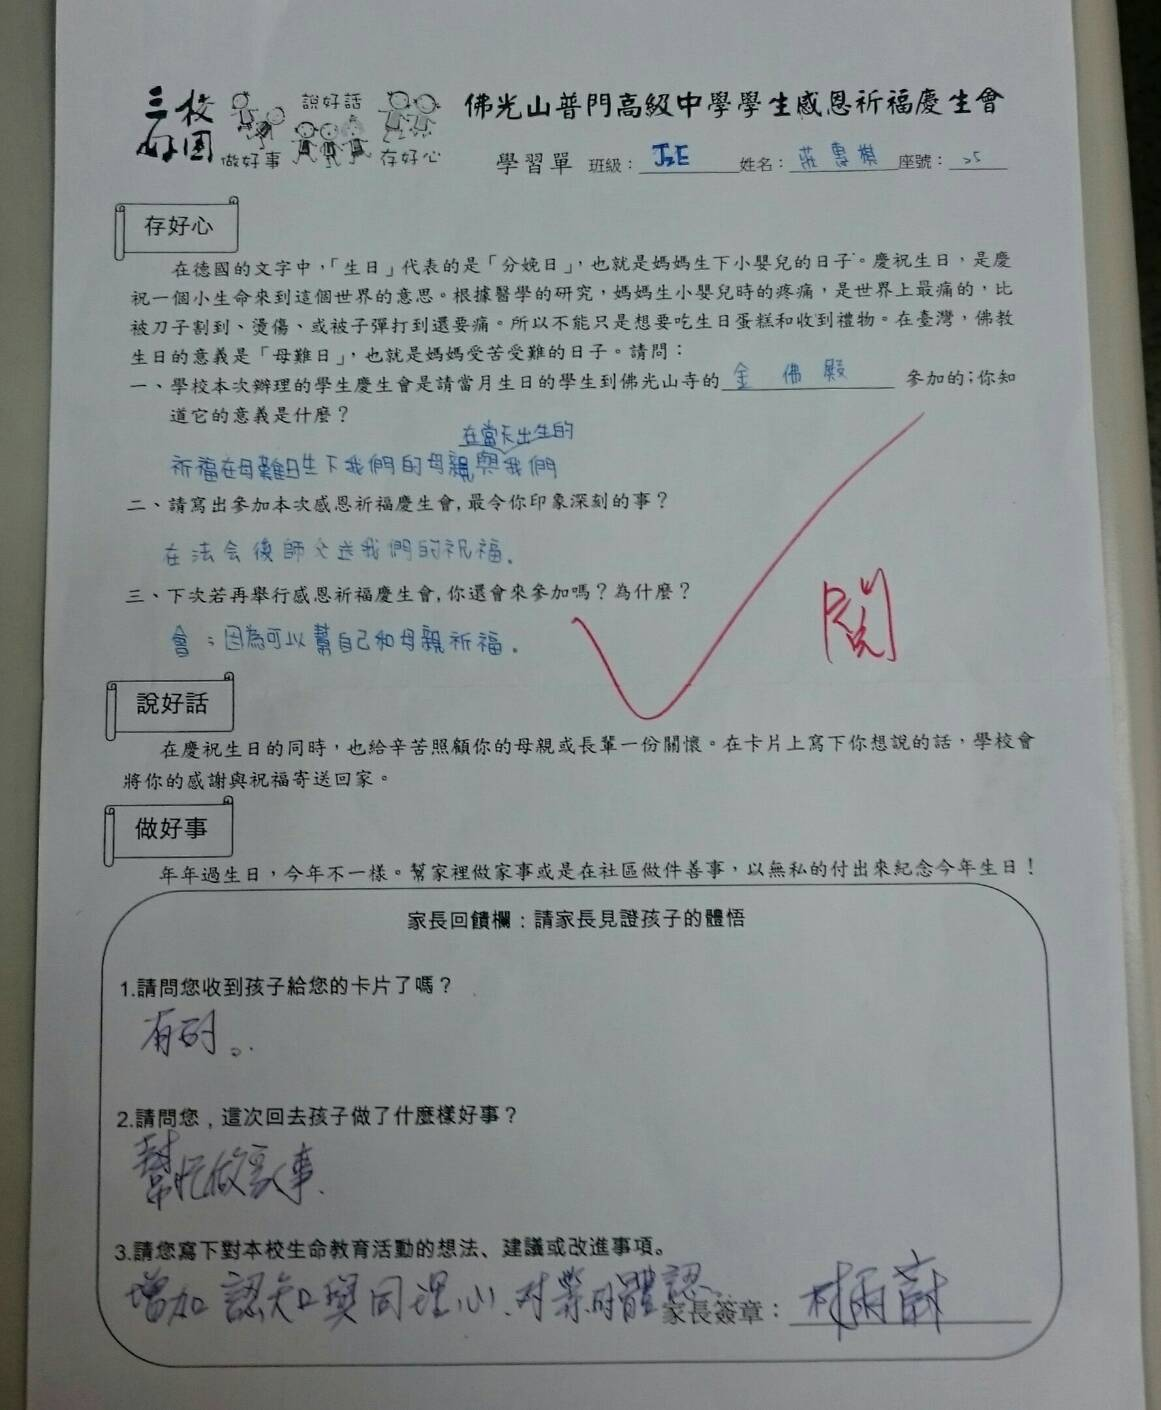 三好校園
說好話
做好事
存好心
佛光山普門高級中學學生感恩祈福慶生會
學習單 班級：J2E 姓名：莊惠 座號：25
存好心
在德國的文字中，「生日」代表的是「分娩日」，也就是媽媽生下小嬰兒的日子。慶祝生日，是慶
祝一個小生命來到這個世界的意思。根據醫學的研究，媽媽生小嬰兒時的疼痛，是世界上最痛的，比
被刀子割到、燙傷、或被子彈打到還要痛。所以不能只是想要吃生日蛋糕和收到禮物。在臺灣，佛教
生日的意義是「母難日」，也就是媽媽受苦受難的日子。請問：
一、學校本次辦理的學生慶生會是請當月生日的學生到佛光山寺的 金佛殿 參加的；你知
道它的意義是什麼？
在當天出生的
祈福在母難日生下我們的母親與我們
二、請寫出參加本次感恩祈福慶生會，最令你印象深刻的事？
在法会後師父送我們的祝福.
三、下次若再舉行感恩祈福慶生會，你還會來參加嗎？為什麼？
會；因為可以幫自己和母親祈福.
閱
說好話
在慶祝生日的同時，也給辛苦照顧你的母親或長輩一份關懷。在卡片上寫下你想說的話，學校會
將你的感謝與祝福寄送回家。
做好事
年年過生日，今年不一樣。幫家裡做家事或是在社區做件善事，以無私的付出來紀念今年生日！
家長回饋欄：請家長見證孩子的體悟
1.請問您收到孩子給您的卡片了嗎？
有的。
2.請問您，這次回去孩子做了什麼樣好事？
幫忙做家事.
3.請您寫下對本校生命教育活動的想法、建議或改進事項。
增加認知與同理心、對業的體認
家長簽章：林雨蔚